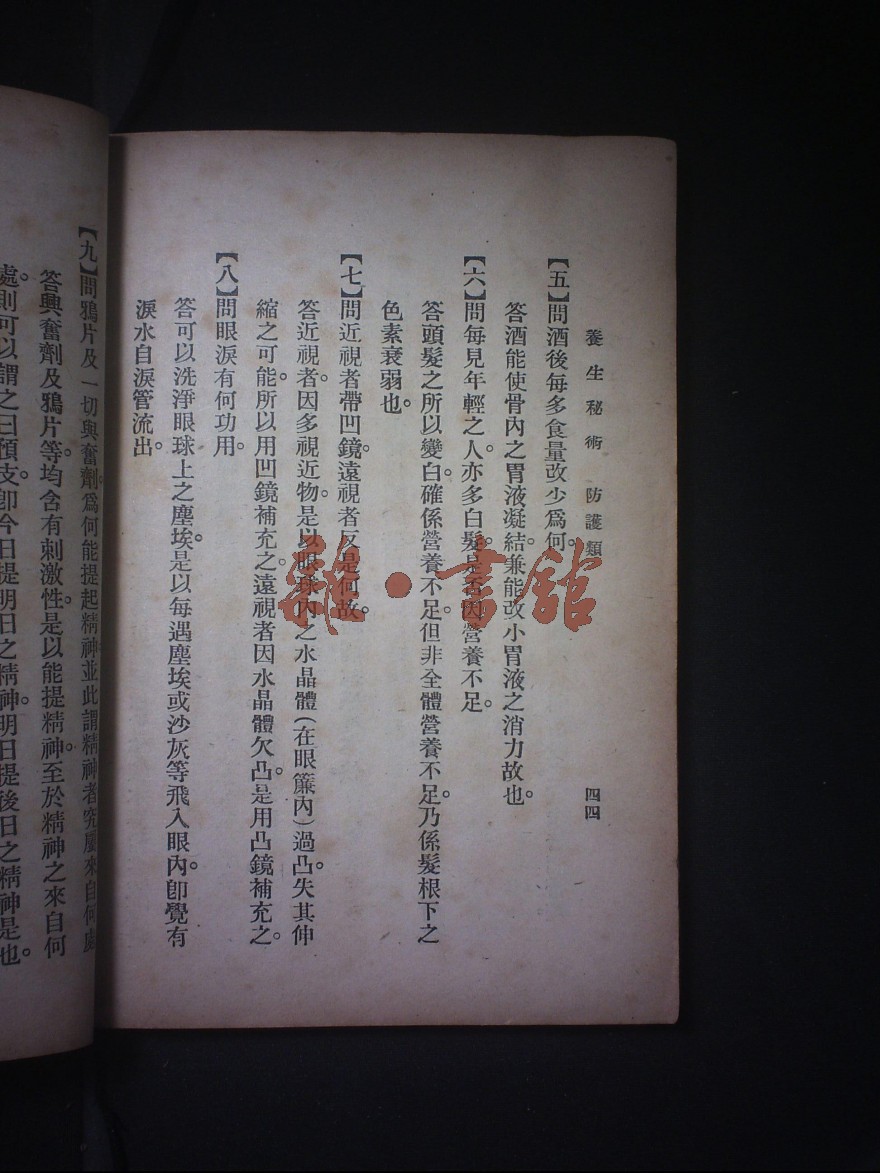 養生秘術 防護類
四四
【五】問酒後每多食量改少爲何。
答酒能使骨內之胃液凝結。兼能改小胃液之消力故也。
【六】問每見年輕之人亦多白髮。是否因營養不足。
答頭髮之所以變白。確係營養不足。但非全體營養不足。乃係髮根下之
色素衰弱也。
【七】問近視者帶凹鏡。遠視者反是何故。
答近視者。因多視近物。是以眼球內之水晶體(在眼簾內)過凸。失其伸
縮之可能。所以用凹鏡補充之。遠視者因水晶體欠凸。是用凸鏡補充之。
【八】問眼淚有何功用。
答可以洗淨眼球上之塵埃。是以每遇塵埃或沙灰等飛入眼內。卽覺有
淚水自淚管流出。
【九】問鴉片及一切興奮劑。爲何能提起精神。並此謂精神者究屬來自何處
答興奮劑及鴉片等。均含有刺激性。是以能提精神。至於精神之來自何
處。則可以謂之曰預支。卽今日提明日之精神。明日提後日之精神是也。
雜·書館